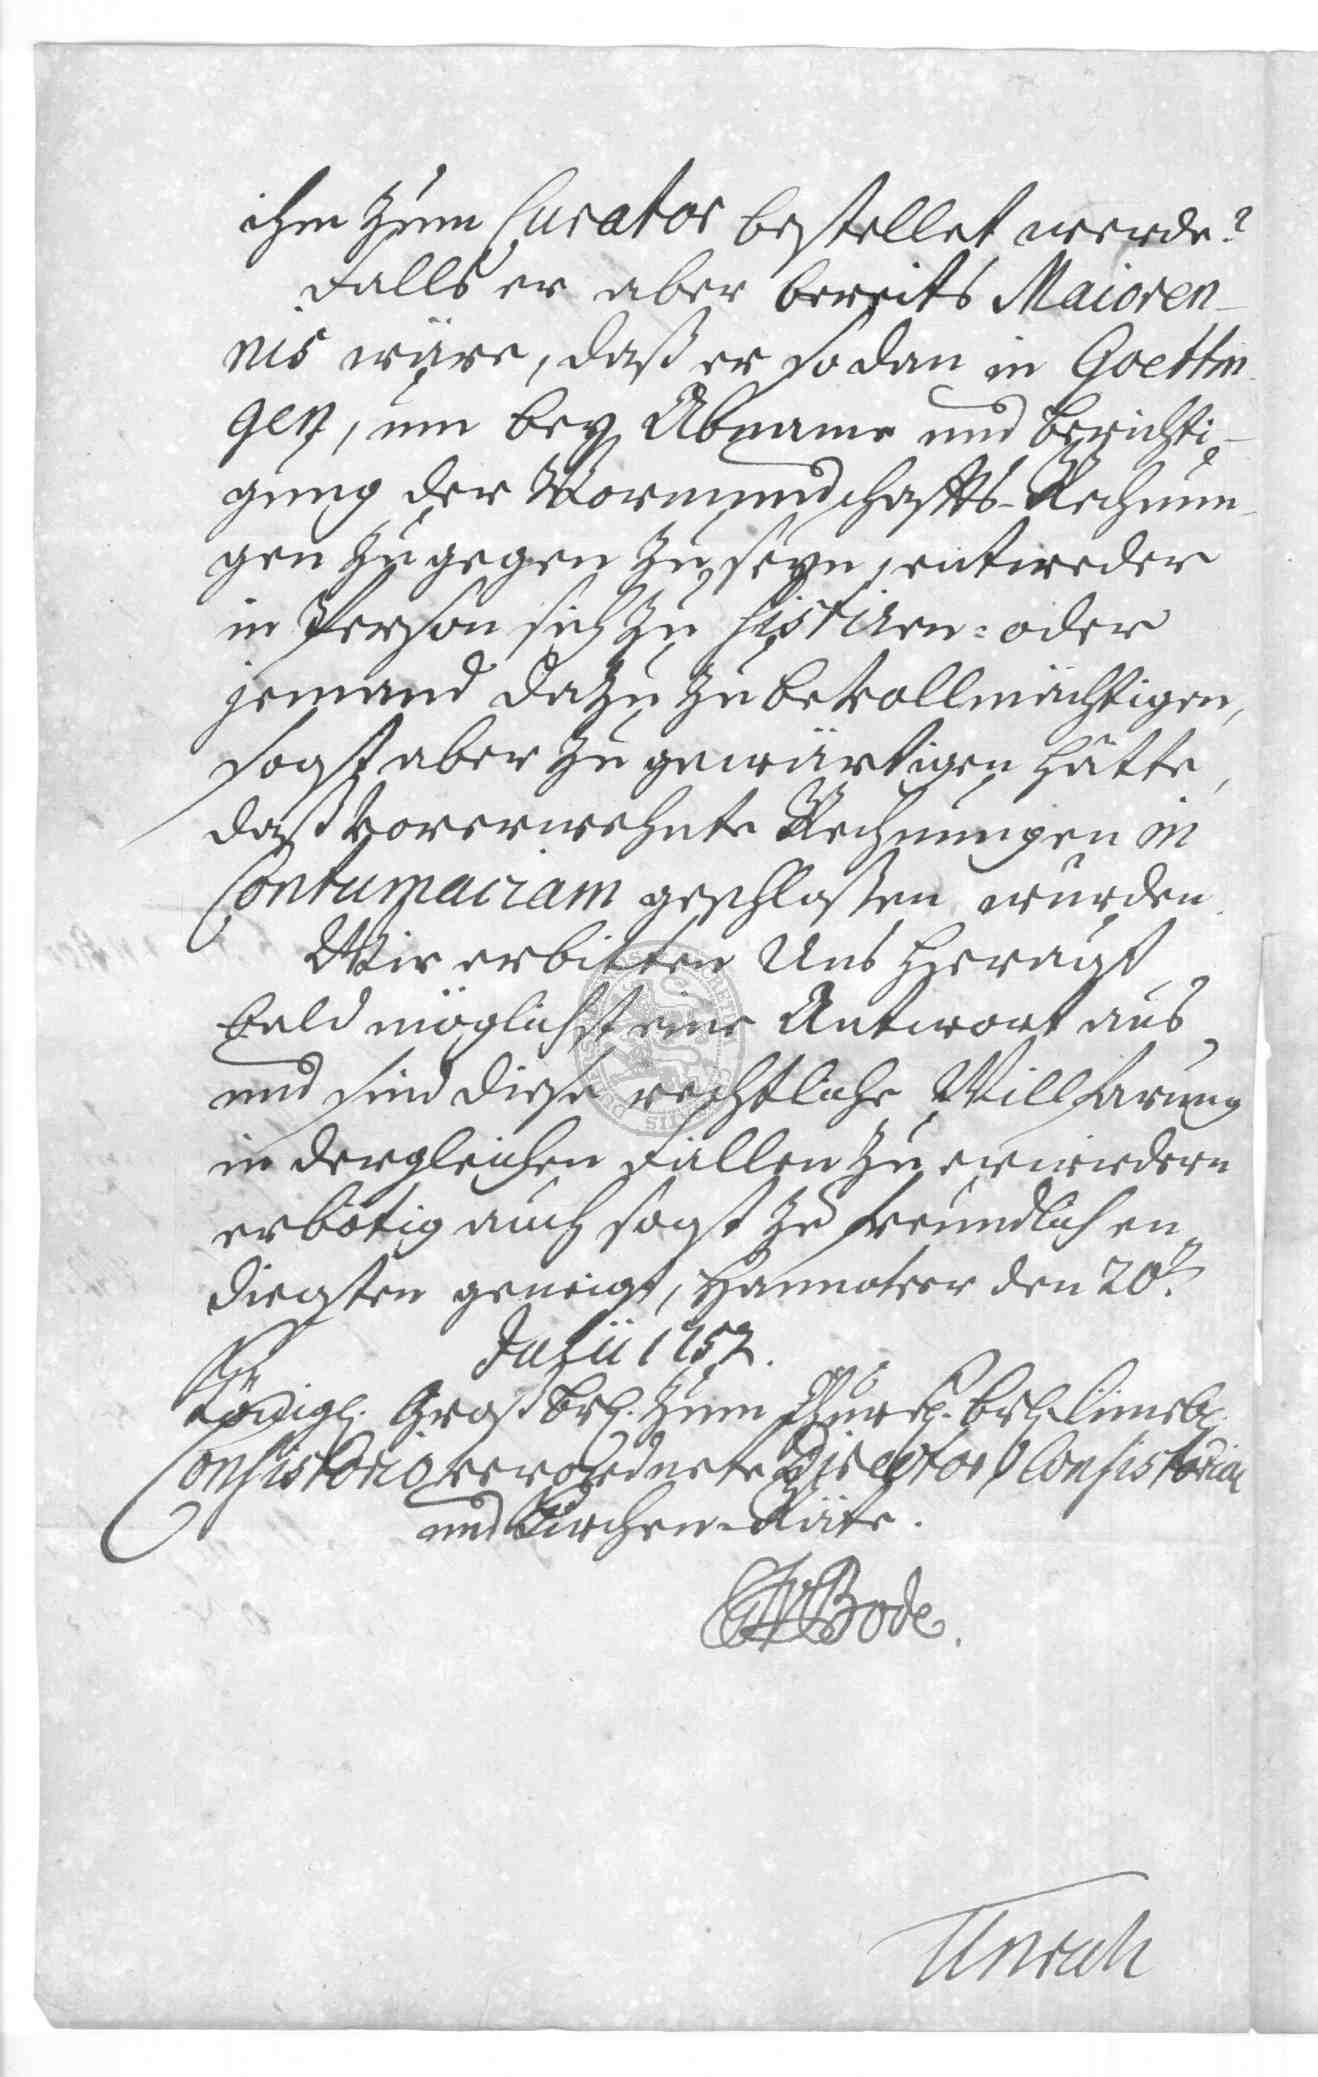 ihm zum Curator bestellet werde?
Falls er aber bereits Maioren-
nis wäre, daß er sodan in Goettin-
gen, um bey Abname und Berichti-
gung der Vormundschaffts-Rechnun-
gen zugegen zu seyn, entweder
in Person sich zu sistiren: oder
jemand dazu zu bevollmächtigen,
sonst aber zu gewärtigen hätte,
daß vorerwehnte Rechnungen in
Contumaciam geschloßen würden.
Wir erbitten Uns hierauf
bald möglichst eine Antwort aus,
und sind diese rechtliche Willfarung
in dergleichen Fällen zu erwiedern
erbötig auch sonst zu freundlichen
Diensten geneigt, Hannover den 20t.
1752.
Königl. GrosBrl. zum Churfl. Brl. Lüneb.
Consistorio verordnete Director, Consistorial
und Kirchen-Räte.
Bode.
Unruh